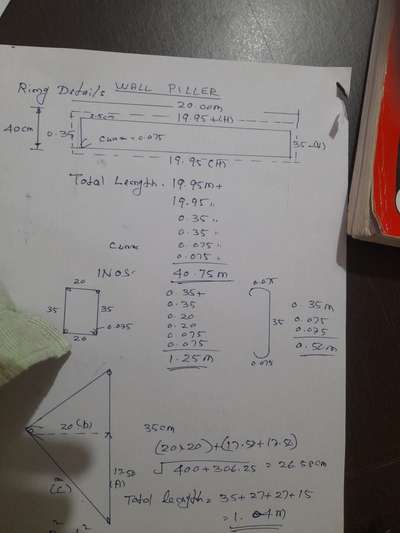 Ring Details WALL PILLER
20.00m
2.5cm 19.95+(H)
40cm 0.35 Curve = 0.075 35-(V)
19.95(H)
Total Length. 19.95m+
19.95 "
0.35 "
0.35 "
Curve 0.075 "
0.075 "
1NOS: 40.75m
20
35 35
0.075
20
0.35+
0.35
0.20
0.20
0.075
0.075
1.25m
0.075
35
0.075
0.35m
0.075
0.075
0.50m
20(b)
17.50
(A)
(c)
35cm
(20x20)+(17.5+17.5)
√400+306.25 = 26.58cm
Total length = 35+27+27+15
= 1.04m